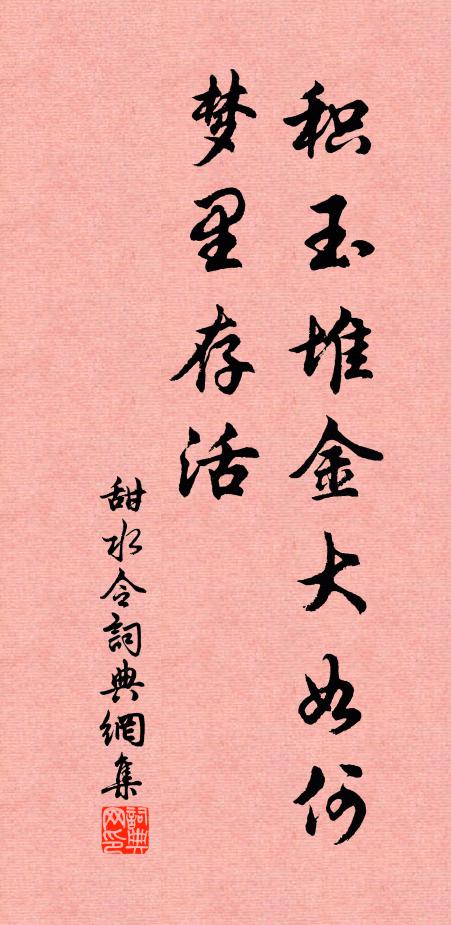 积玉堆金大如何
梦里存活
甜水令詞典網集
詞典网印